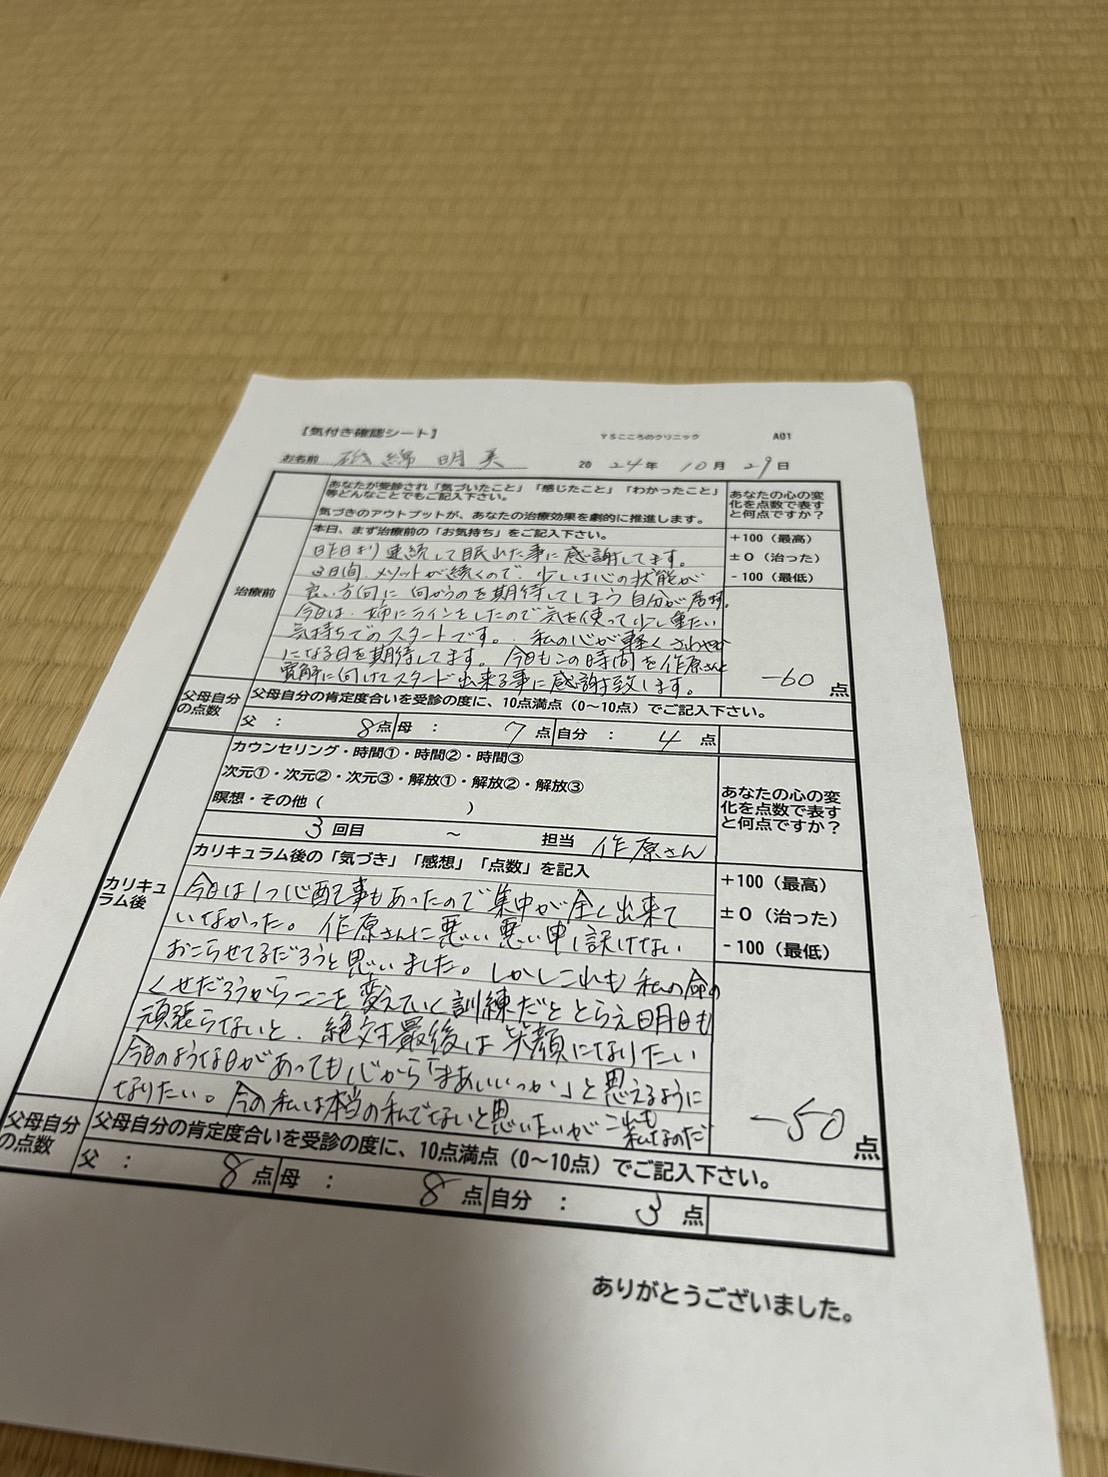 【気付き確認シート】 YSこころのクリニック A01
お名前 磯綿明美 2024年10月29日
あなたが受診され「気づいたこと」「感じたこと」「わかったこと」
等どんなことでもご記入下さい。
気づきのアウトプットが、あなたの治療効果を劇的に推進します。
あなたの心の変
化を点数で表す
と何点ですか？
治療前
本日、まず治療前の「お気持ち」をご記入下さい。
昨日より連続して眠れた事に感謝してます。
3日間 メソットが続くので、少しは心の状態が
良い方向に向かうのを期待してしまう自分が居ます。
今日は、姉にラインをしたので気を使って少し重たい
気持ちでのスタートです。私の心が軽くさわやか
になる日を期待してます。今日もこの時間を作原さんと
寛解に向けてスタート出来る事に感謝致します。
+100（最高）
±0（治った）
-100（最低）
-60点
父母自分
の点数
父母自分の肯定度合いを受診の度に、10点満点（0〜10点）でご記入下さい。
父： 8点 母： 7点 自分： 4点
カリキュ
ラム後
カウンセリング・時間①・時間②・時間③
次元①・次元②・次元③・解放①・解放②・解放③
瞑想・その他（ ）
3回目 〜 担当 作原さん
あなたの心の変
化を点数で表す
と何点ですか？
カリキュラム後の「気づき」「感想」「点数」を記入
今日は1つ心配事もあったので集中が全く出来て
いなかった。作原さんに悪い悪い申し訳けない
おこらせてるだろうと思いました。しかしこれも私の命の
くせだろうからここを変えていく訓練だととらえ明日も
頑張らないと、絶対最後は笑顔になりたい
今日のような日があっても心から「まあいいっか」と思えるように
なりたい。今の私は本当の私でないと思いたいがこれも
私なのだ
+100（最高）
±0（治った）
-100（最低）
-50点
父母自分
の点数
父母自分の肯定度合いを受診の度に、10点満点（0〜10点）でご記入下さい。
父： 8点 母： 8点 自分： 3点
ありがとうございました。